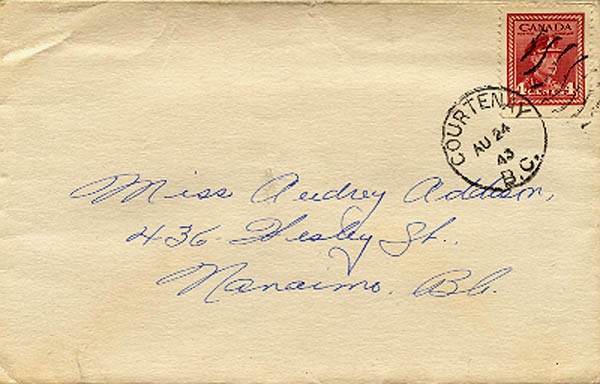 CANADA
4 CENTS 4
COURTENAY
AU 24
43
B.C.
Miss Audrey Addison,
436 Wesley St.,
Nanaimo, B.C.